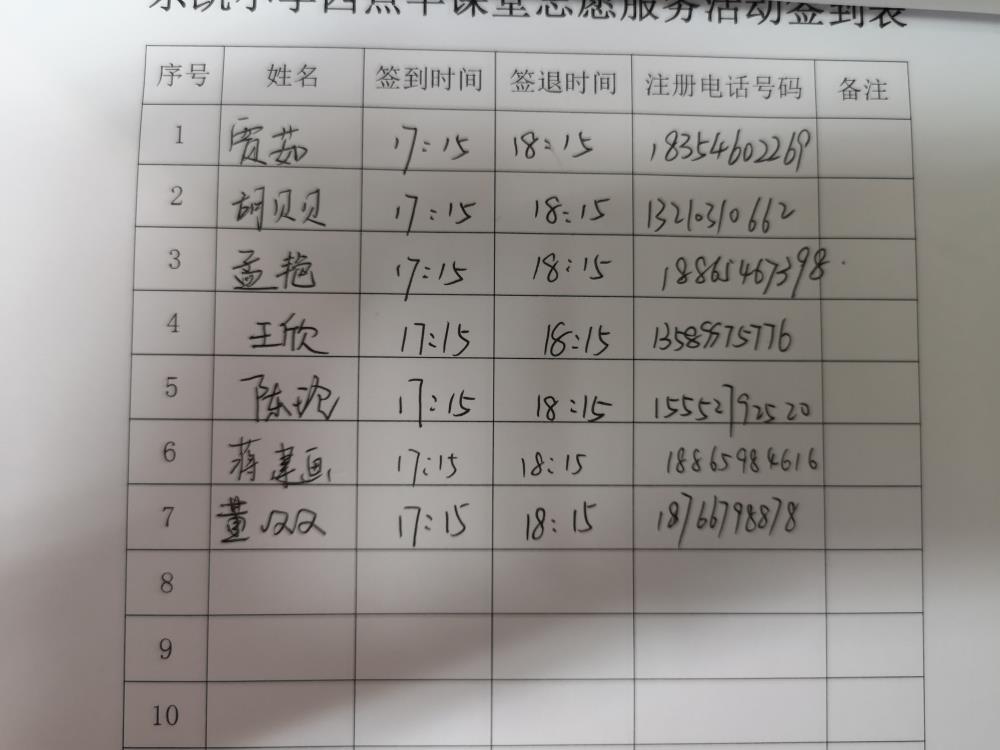 小学四点半课堂志愿服务活动签到表
序号 姓名 签到时间 签退时间 注册电话号码 备注
1 贾茹 17:15 18:15 18354602269
2 胡贝贝 17:15 18:15 13210310662
3 孟艳 17:15 18:15 18865467398
4 王欣 17:15 18:15 13589975776
5 陈 17:15 18:15 15552792520
6 蒋建画 17:15 18:15 18865984616
7 董双双 17:15 18:15 18766798878
8
9
10